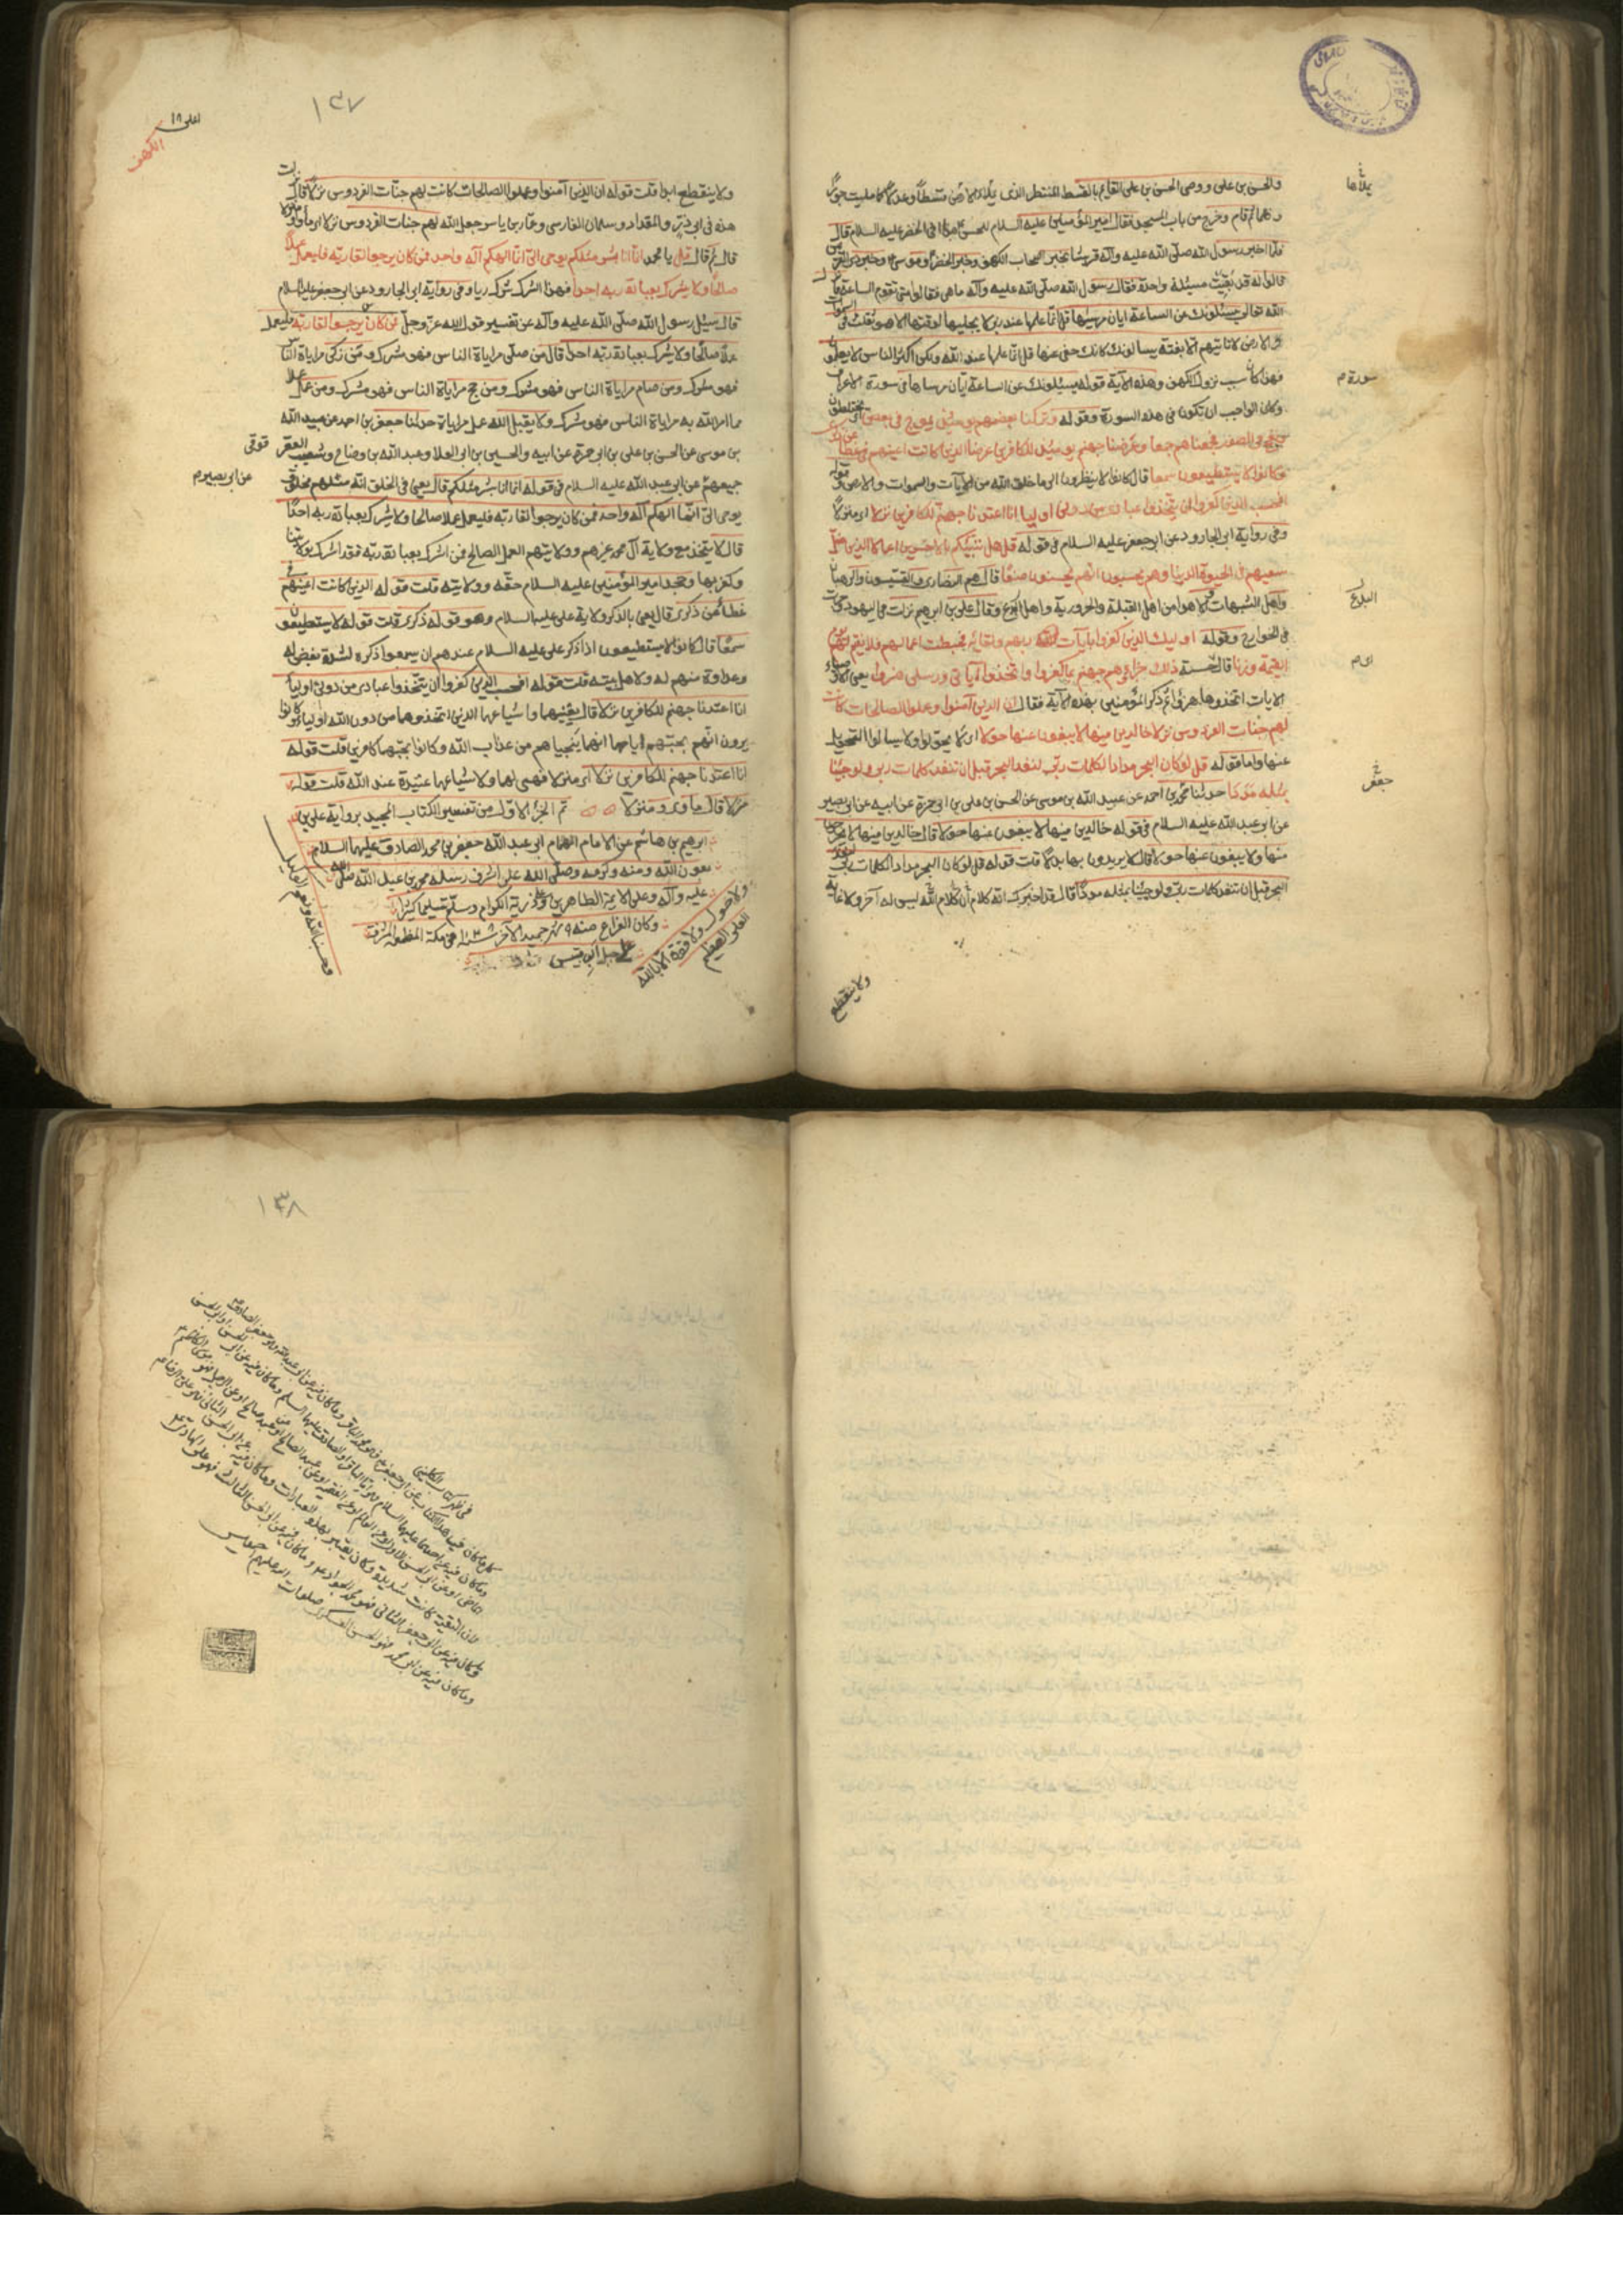 والحسن بن علي ووصي الحسن بن علي القايم بالقسط المنتظر الذي يملاء الارض قسطاً وعدلاً كما مليت جوراً
يملأها
وظلماً ثم قام وخرج من باب المسجد فقال امير المؤمنين عليه السلام للحسن هذا اخي الخضر عليه السلام قال
فلما اخبر رسول الله صلّى الله عليه وآله قريشا بخبر اصحاب الكهف وخبر الخضر وموسى وخبر ذي القرنين
قالوا له قد بقيت مسئلة واحدة فقال رسول الله صلّى الله عليه وآله ما هي فقالوا متى تقوم الساعة فانزل
الله تعالى يسئلونك عن الساعة ايان مرسيها قل انما علمها عند ربي لا يجليها لوقتها الا هو ثقلت في السموات
والارض لا تاتيهم الا بغتة يسالونك كانك حفي عنها قل انما علمها عند الله ولكن اكثر الناس لا يعلمون
فهذا كان سبب نزول الكهف وهذه الآية قوله يسئلونك عن الساعة ايان مرساها في سورة الاعراف
سورة م
وكان الواجب ان تكون في هذه السورة وقوله وتركنا بعضهم يومئذ يموج في بعض اي يختلطون
ونفخ في الصور فجمعناهم جمعا وعرضنا جهنم يومئذ للكافرين عرضا الذين كانت اعينهم في غطاء
وكانوا لا يستطيعون سمعا قال كانوا لا ينظرون الى ما خلق الله من الآيات والسموات والارض وقوله
افحسب الذين كفروا ان يتخذوا عبادي من دوني اوليا انا اعتدنا جهنم للكافرين نزلا اي منزلاً
وفي رواية ابي الجارود عن ابي جعفر عليه السلام في قوله قل هل ننبئكم بالاخسرين اعمالا الذين ضل
سعيهم في الحيوة الدنيا وهم يحسبون انهم يحسنون صنعا قال هم النصارى والقسيسون والرهبان
واهل الشبهات والاهوا من اهل القبلة والحرورية واهل البدع وقال علي بن ابرهيم نزلت في اليهود وجرت
البدع
في الخوارج وقوله اوليك الذين كفروا بايات ربهم ولقائه فحبطت اعمالهم فلا نقيم لهم يوم
القيمة وزنا قال حسنة ذلك جزاؤهم جهنم بما كفروا واتخذوا آياتي ورسلي هزوا يعني الاوصياء
الايات اتخذوها هزوا ثم ذكر المؤمنين بهذه الآية فقال ان الذين آمنوا وعملوا الصالحات كانت
لهم جنات الفردوس نزلا خالدين فيها لا يبغون عنها حولا اي لا يحولون ولا يسالوا التحويل
عنها واما قوله قل لو كان البحر مدادا لكلمات ربي لنفد البحر قبل ان تنفد كلمات ربي ولو جئنا
بمثله مددا حدثنا محمد بن احمد عن عبيد الله بن موسى عن الحسن بن علي بن ابي حمزة عن ابيه عن ابي بصير
جعفر
عن ابي عبد الله عليه السلام في قوله خالدين فيها لا يبغون عنها حولا قال خالدين فيها لا يخرجون
منها ولا يبغون عنها حولا قال لا يريدون بها بدلاً قلت قوله قل لو كان البحر مدادا لكلمات ربي لنفد
البحر قبل ان تنفد كلمات ربي ولو جئنا بمثله مدداً قال قد اخبرك انه كلام أن كلام الله ليس له آخر ولا غاية
ولا ينقطع
١٣٧
الكهف
ولا ينقطع ابدا قلت قوله ان الذين آمنوا وعملوا الصالحات كانت لهم جنات الفردوس نزلاً قال نزلت
هذه في ابي ذر والمقداد وسلمان الفارسي وعمار بن ياسر جعل الله لهم جنات الفردوس نزلا اي مأوا ومنزلا
قال ثم قال قل يا محمد انما انا بشر مثلكم يوحى الي انما الهكم آله واحد فمن كان يرجوا لقاء ربه فليعمل عملا
صالحا ولا يشرك بعبادة ربه احدا فهذا الشرك شرك رياء وفي رواية ابي الجارود عن ابي جعفر عليه السلام
قال سئل رسول الله صلّى الله عليه وآله عن تفسير قول الله عز وجل فمن كان يرجوا لقاء ربه فليعمل
عملا صالحا ولا يشرك بعبادة ربه احدا قال من صلى مراياة الناس فهو مشرك ومن زكى مراياة الناس
فهو مشرك ومن صام مراياة الناس فهو مشرك ومن حج مراياة الناس فهو مشرك ومن عمل عملا
مما امر الله به مراياة الناس فهو مشرك ولا يقبل الله عمل مراياة حدثنا جعفر بن احمد عن عبيد الله
بن موسى عن الحسن بن علي بن ابي حمزة عن ابيه والحسين بن ابي العلا وعبد الله بن وضاح وشعيب العقرقوفي
جميعهم عن ابي عبد الله عليه السلام في قوله انما انا بشر مثلكم قال يعني في الخلق انه مثلهم مخلوق
عن ابي بصير م
يوحى الي انما الهكم آله واحد فمن كان يرجوا لقاء ربه فليعمل عملا صالحا ولا يشرك بعبادة ربه احداً
قال لا يتخذ مع ولاية آل محمد غيرهم وولايتهم العمل الصالح فمن اشرك بعبادة ربه فقد اشرك بولايتنا
وكفر بها وجحد امير المؤمنين عليه السلام حقه وولايته قلت قوله الذين كانت اعينهم في
غطاء عن ذكري قال يعني بالذكر ولاية علي عليه السلام وهو قوله ذكري قلت قوله لا يستطيعون
سمعا قال كانوا لا يستطيعون اذا ذكر علي عليه السلام عندهم ان يسمعوا ذكره لشدة بغض له
وعداوة منهم له ولاهل بيته قلت قوله افحسب الذين كفروا ان يتخذوا عبادي من دوني اولياء
انا اعتدنا جهنم للكافرين نزلا قال يعنيهما واشياعهما الذين اتخذوهما من دون الله اولياء وكانوا
يرون انهم بحبهم اياهما انهما ينجيانهم من عذاب الله وكانوا بحبهما كافرين قلت قوله
انا اعتدنا جهنم للكافرين نزلا اي منزلا فهي لهما ولاشياعهما عتيدة عند الله قلت قوله
نزلا قال مأوى ومنزلا تم الجزء الاول من تفسير الكتاب المجيد برواية علي بن
ابرهيم بن هاشم عن الامام الهمام ابي عبد الله جعفر بن محمد الصادق عليهما السلام
بعون الله ومنه وكرمه وصلى الله على اشرف رسله محمد بن عبد الله صلى الله
عليه وآله وعلى الائمة الطاهرين وذرية الكرام وسلم تسليما كثيرا
وكان الفراغ منه ٩ شهر جميد الآخر في مكة المعظمة المشرفة
على جبل ابي قبيس
ولا حول ولا قوة الا بالله
العلي العظيم
وحسبنا الله ونعم الوكيل
١٣٨
كلما كان في هذا الكتاب عن ابي جعفر فهو محمد الباقر وما كان فيه عن ابي عبد الله فهو جعفر الصادق
لان التقية كانت شديدة وكان يعتبر بهذه العبارات وما كان فيه عن ابي الحسن الثاني فهو علي الرضا
وما كان فيه عن ابي جعفر الثاني فهو محمد الجواد وما كان فيه عن ابي الحسن الثالث فهو علي الهادي
وما كان فيه عن ابي محمد فهو الحسن العسكري صلوات الله عليهم اجمعين